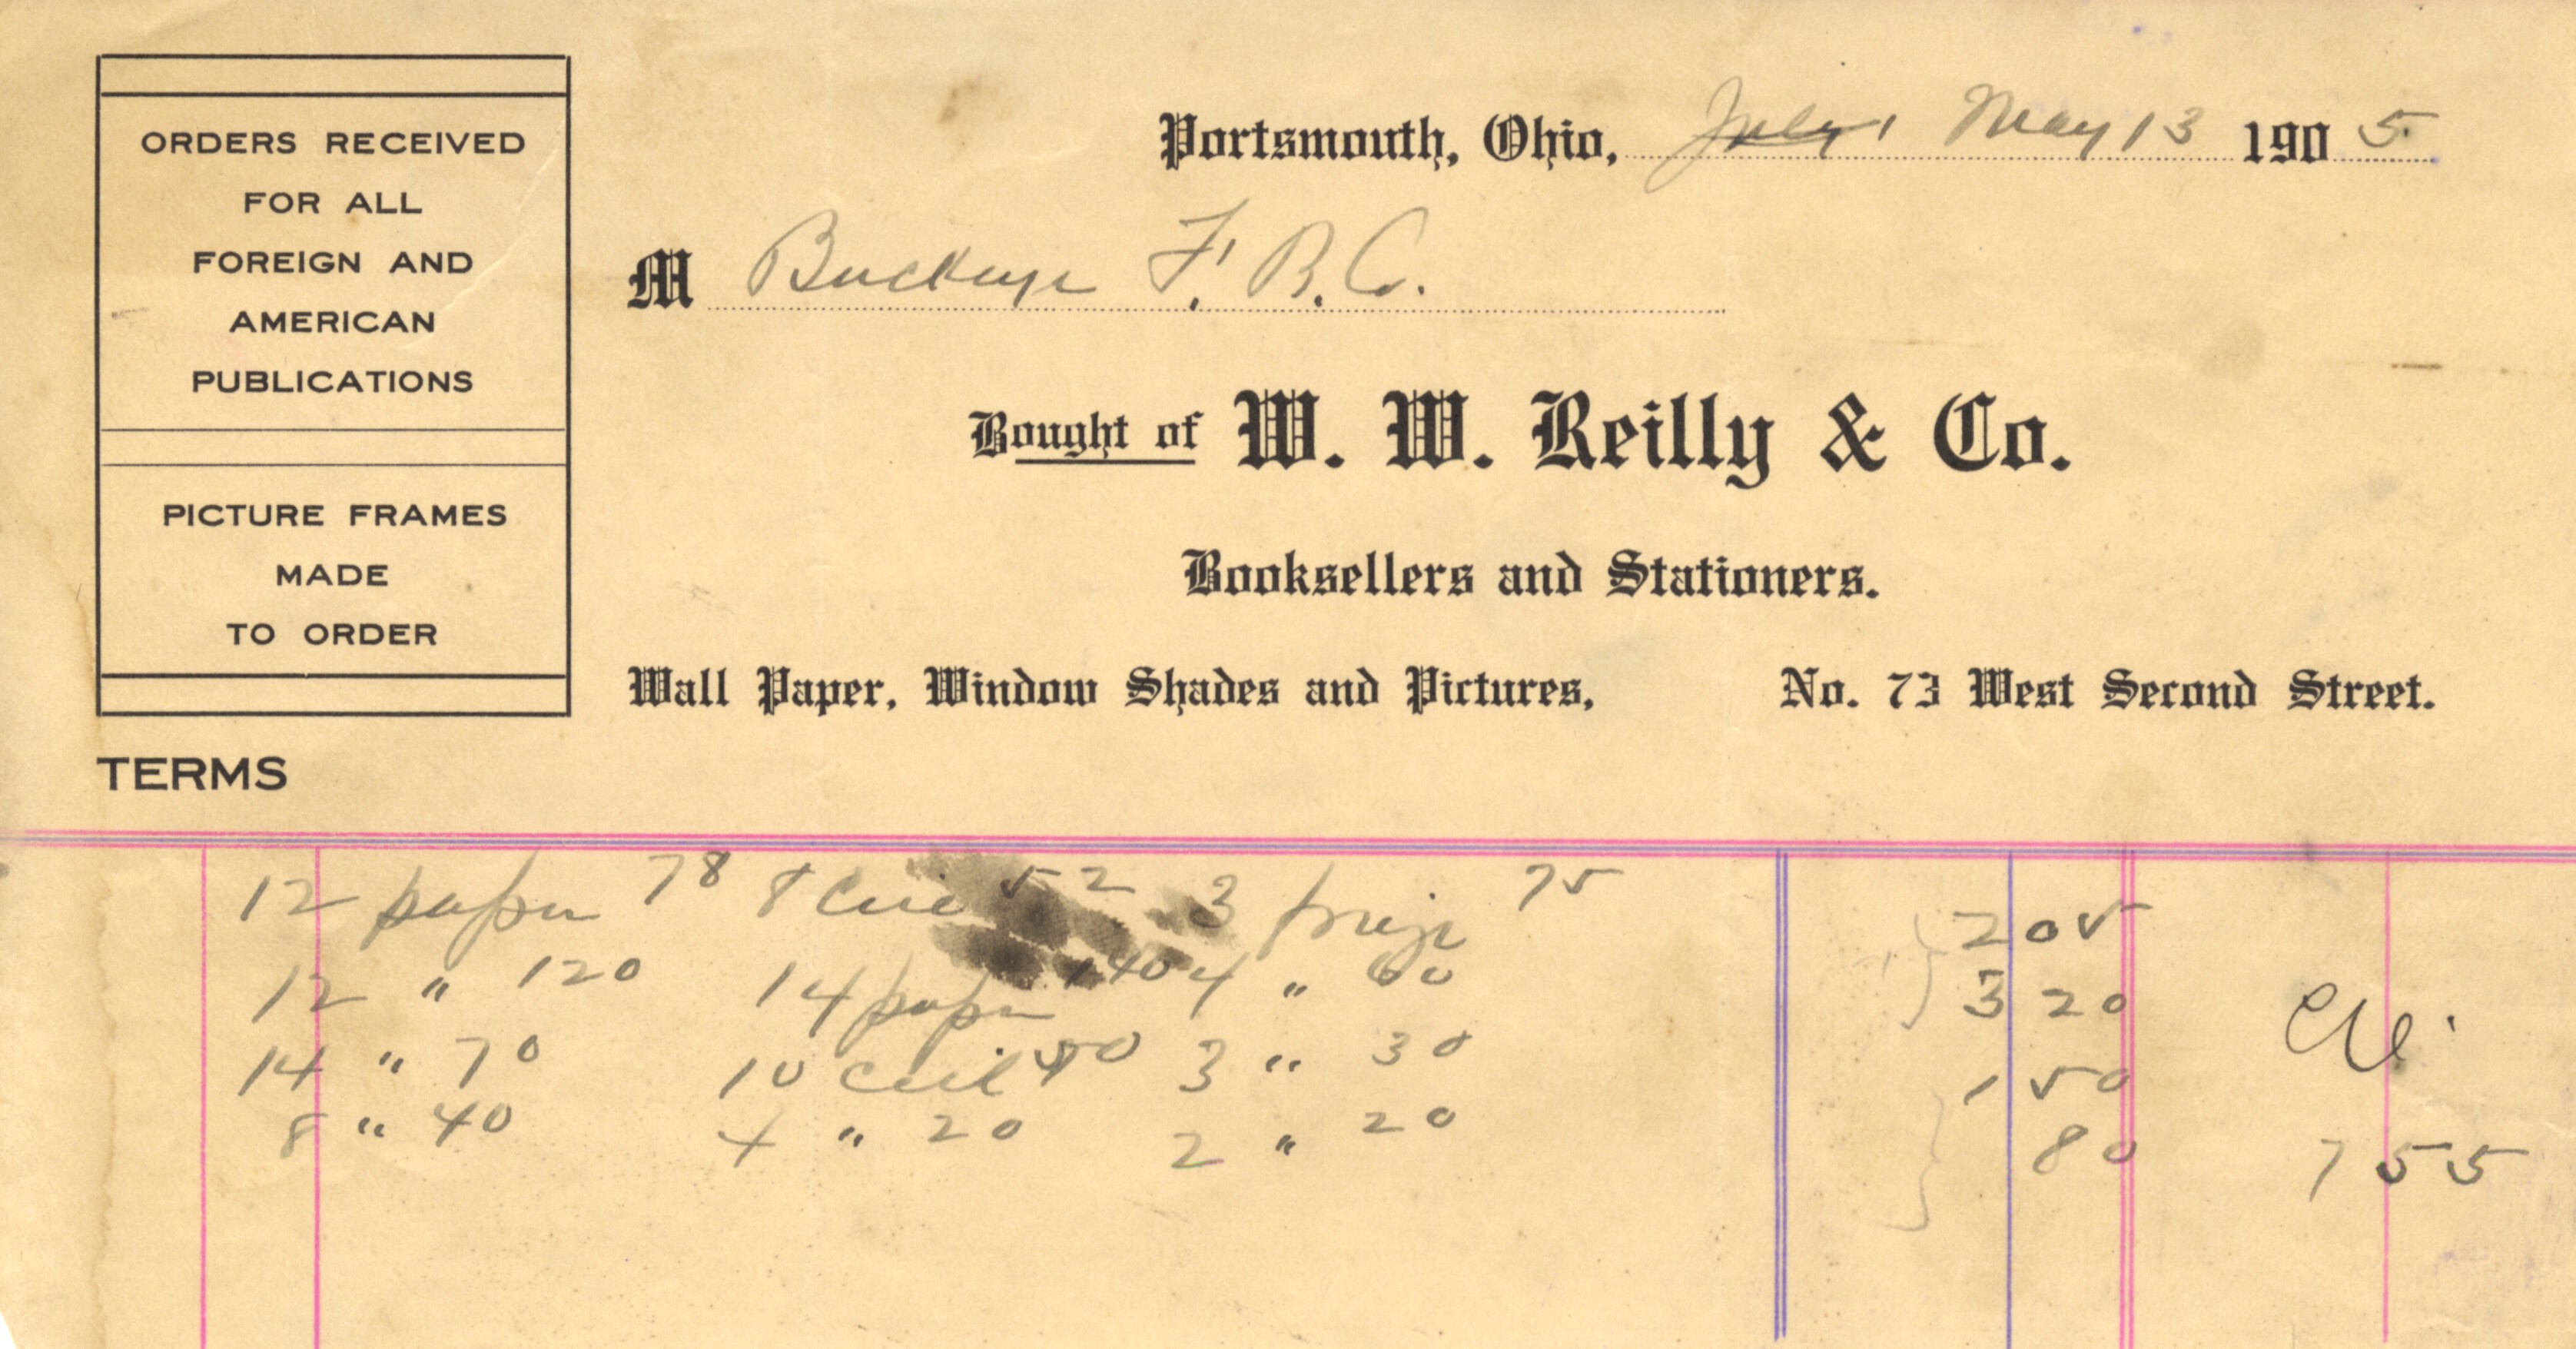 ORDERS RECEIVED
FOR ALL
FOREIGN AND
AMERICAN
PUBLICATIONS
PICTURE FRAMES
MADE
TO ORDER
Portsmouth, Ohio, July 1 May 13 1905
M Buckeye F. B. Co.
Bought of W. W. Reilly & Co.
Booksellers and Stationers.
Wall Paper, Window Shades and Pictures, No. 73 West Second Street.
TERMS
12 paper 78 8 Ceil 52 3 frieze 75 2 05
12 " 120 14 paper 140 4 " 60 3 20
14 " 70 10 ceil 50 3 " 30 1 50
8 " 40 4 " 20 2 " 20 80 7 55